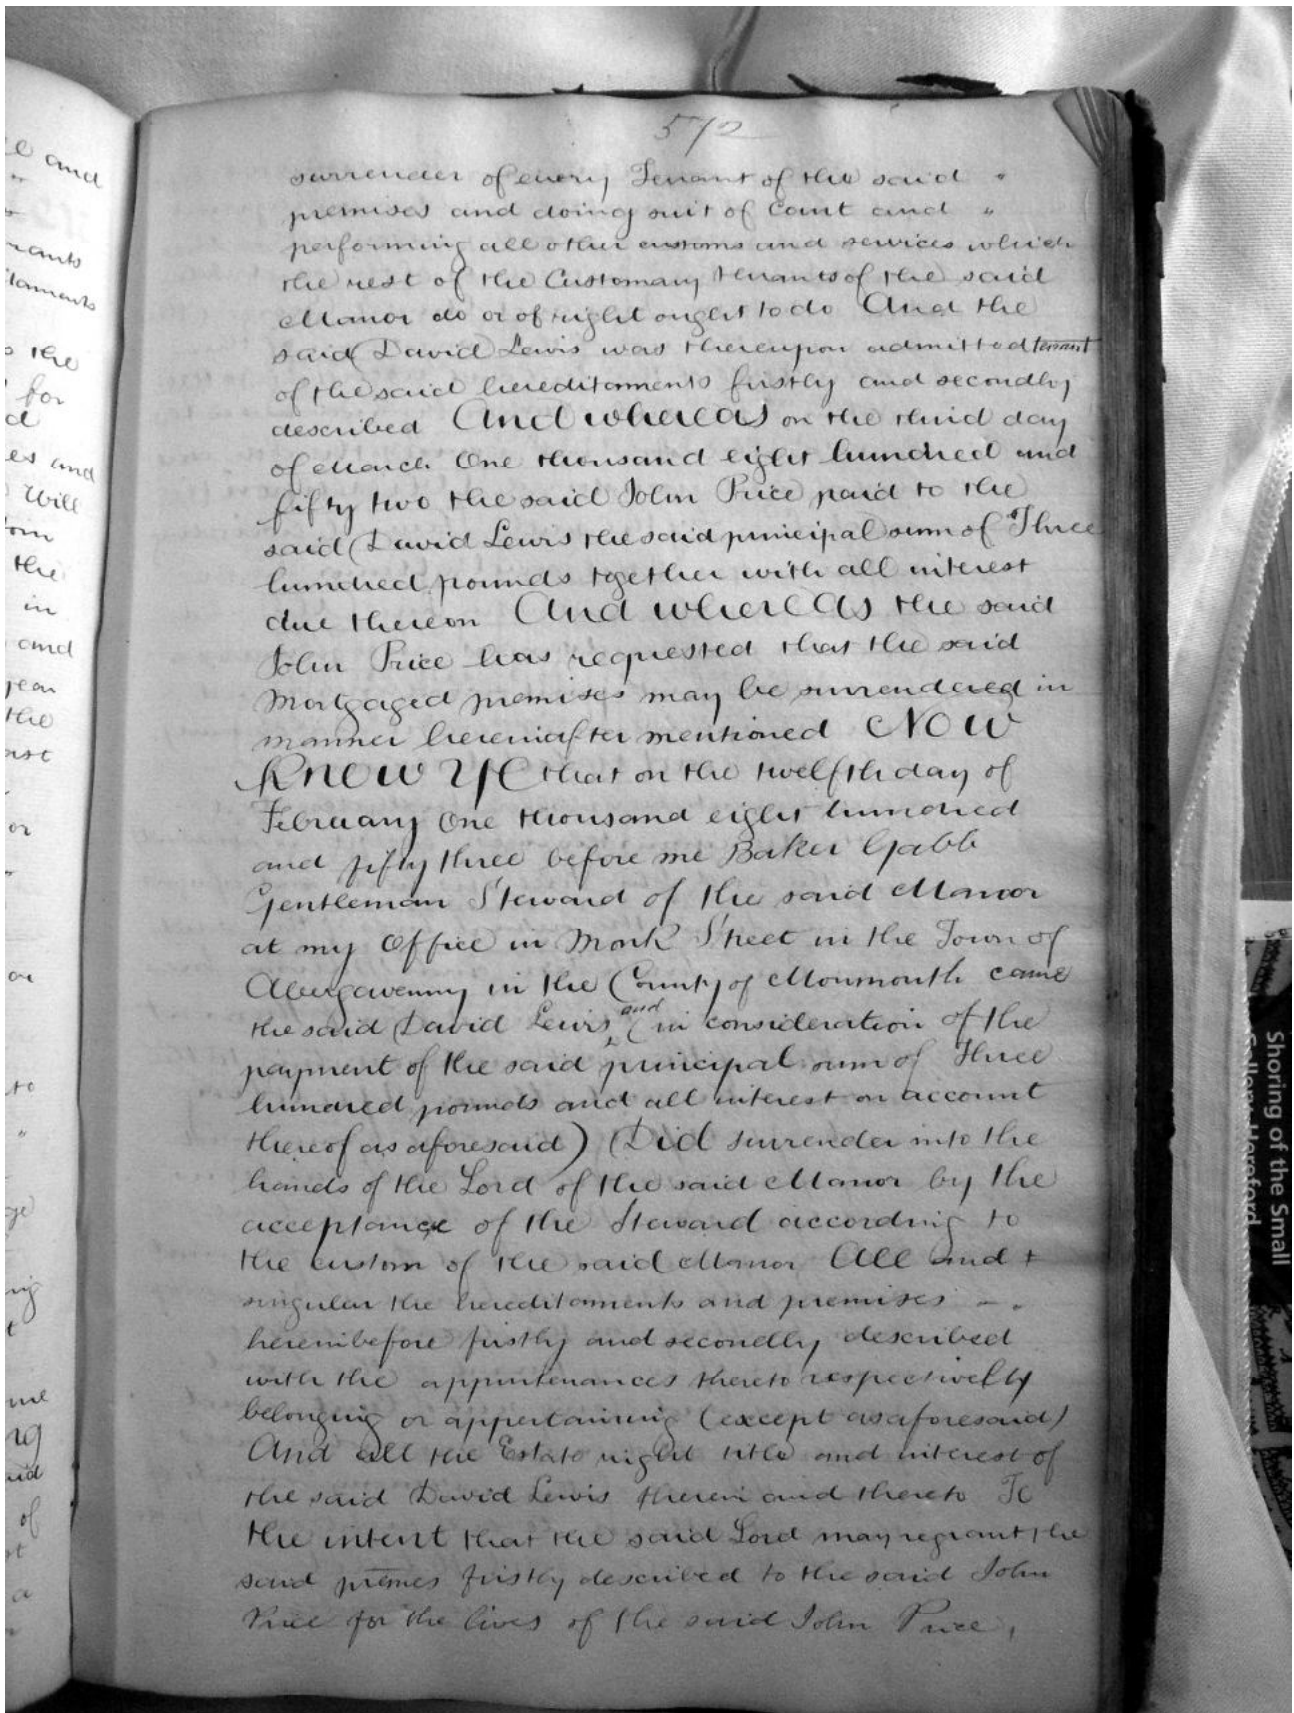 572
surrender of every Tenant of the said "
premises and doing suit of Court and "
performing all other customs and services which
the rest of the Customary tenants of the said
Manor do or of right ought to do And the
said David Lewis was thereupon admitted tenant
of the said hereditaments firstly and secondly
described And whereas on the third day
of March One thousand eight hundred and
fifty two the said John Price paid to the
said David Lewis the said principal sum of Three
hundred pounds together with all interest
due thereon And whereas the said
John Price has requested that the said
Mortgaged premises may be surrendered in
manner hereinafter mentioned Now
Know Ye that on the twelfth day of
February One thousand eight hundred
and fifty three before me Baker Gabb
Gentleman Steward of the said Manor
at my Office in Monk Street in the Town of
Abergavenny in the County of Monmouth came
the said David Lewis and (in consideration of the
payment of the said principal sum of Three
hundred pounds and all interest on account
thereof as aforesaid) Did surrender into the
hands of the Lord of the said Manor by the
acceptance of the Steward according to
the custom of the said Manor All and +
singular the hereditaments and premises -
hereinbefore firstly and secondly described
with the appurtenances thereto respectively
belonging or appertaining (except as aforesaid)
And all the Estate right title and interest of
the said David Lewis therein and thereto To
the intent that the said Lord may regrant the
said premes firstly described to the said John
Price for the lives of the said John Price,
e and
the
for
d
es and
Will
the
in
and
the
or
to
of
a
Shoring of the Small
Gallery Hereford